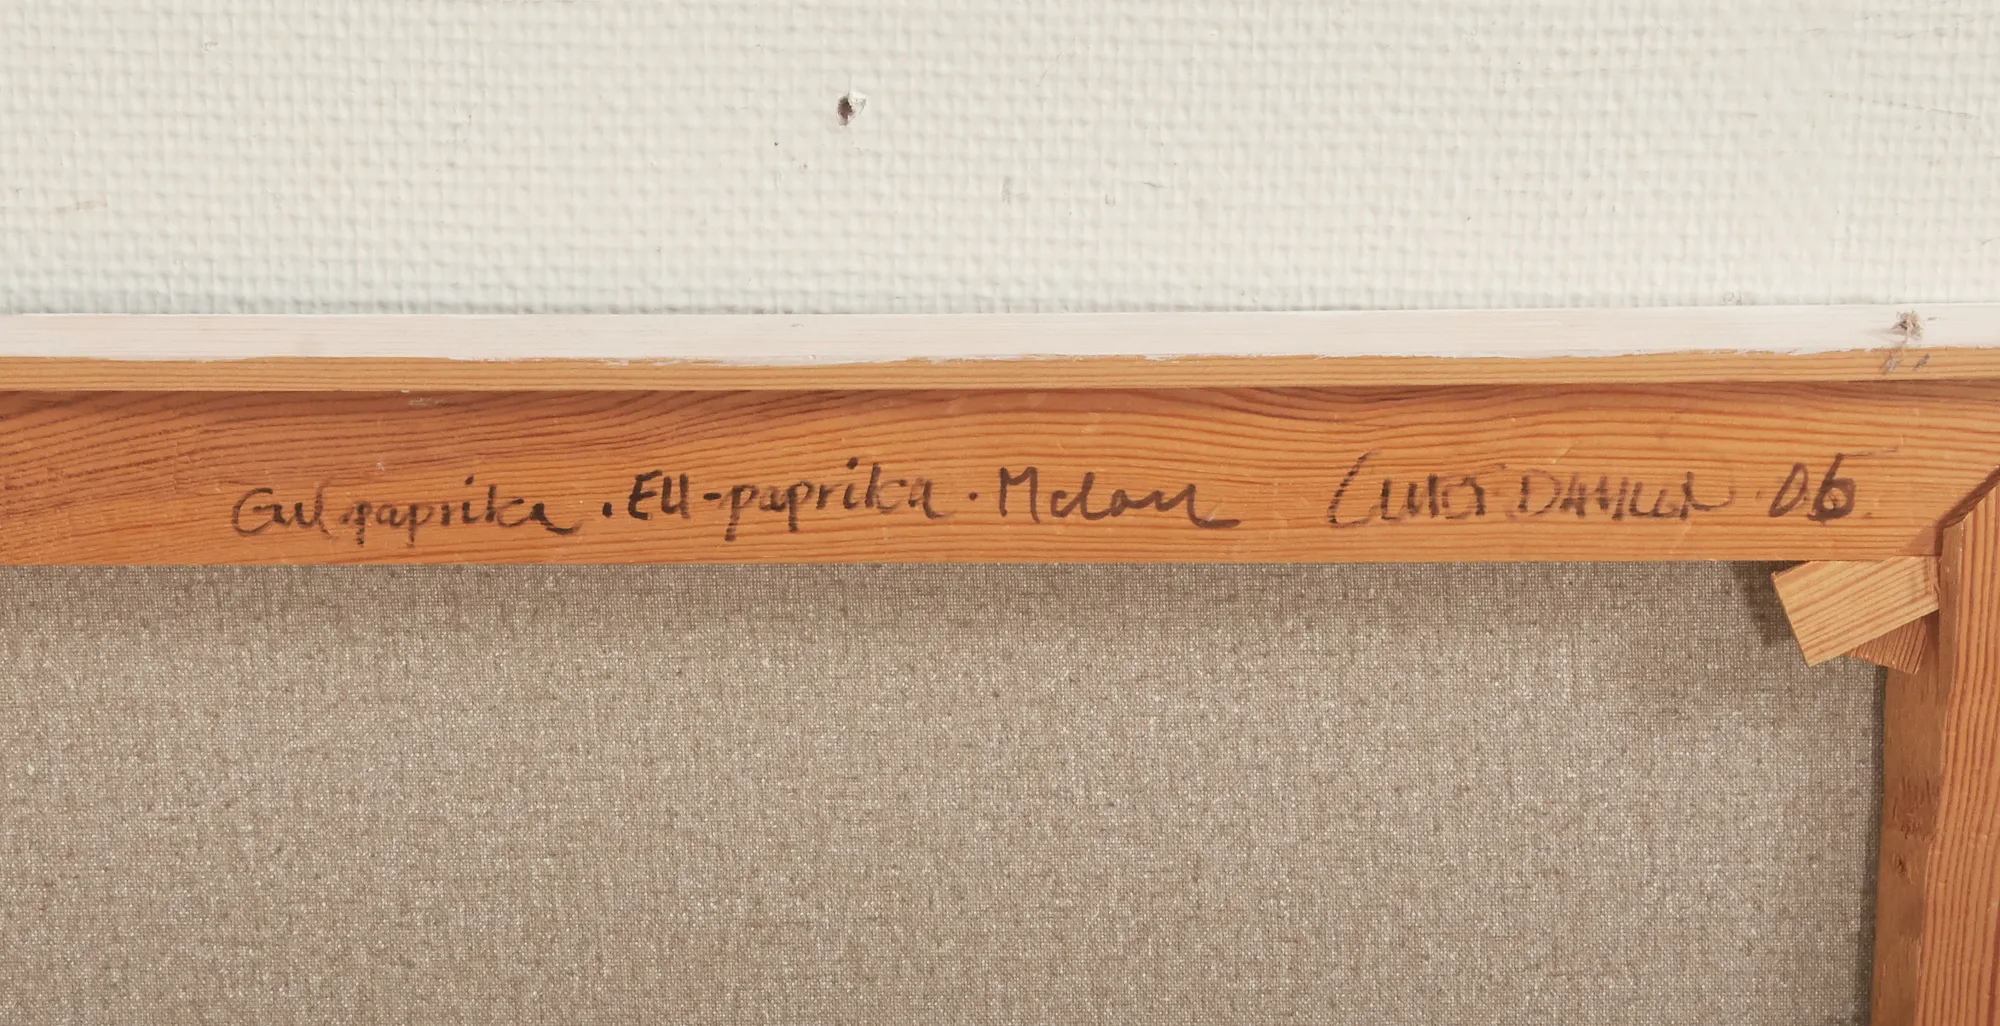 Gul paprika . EU-paprika . Melon CURT DAHLIN 06